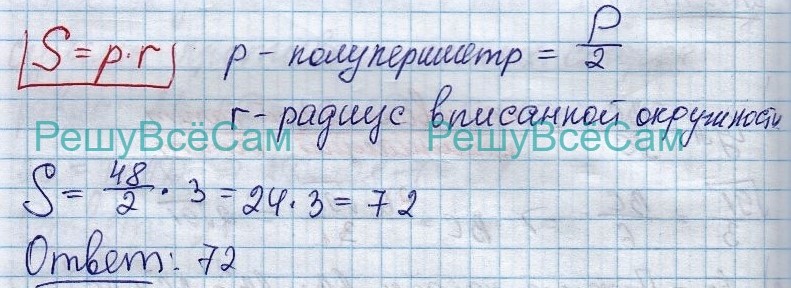 S = p·r p – полупериметр = P/2
r – радиус вписанной окружности
РешуВсёСам РешуВсёСам
S = 48/2 · 3 = 24·3 = 72
Ответ: 72